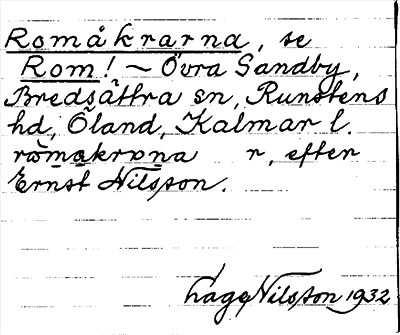 Romåkrarna, se
Rom! ~ Övra Sandby,
Bredsättra sn, Runstens
hd, Öland, Kalmar l.
ròmakrɒna r, efter
Ernst Nilsson.
Lage Nilsson 1932